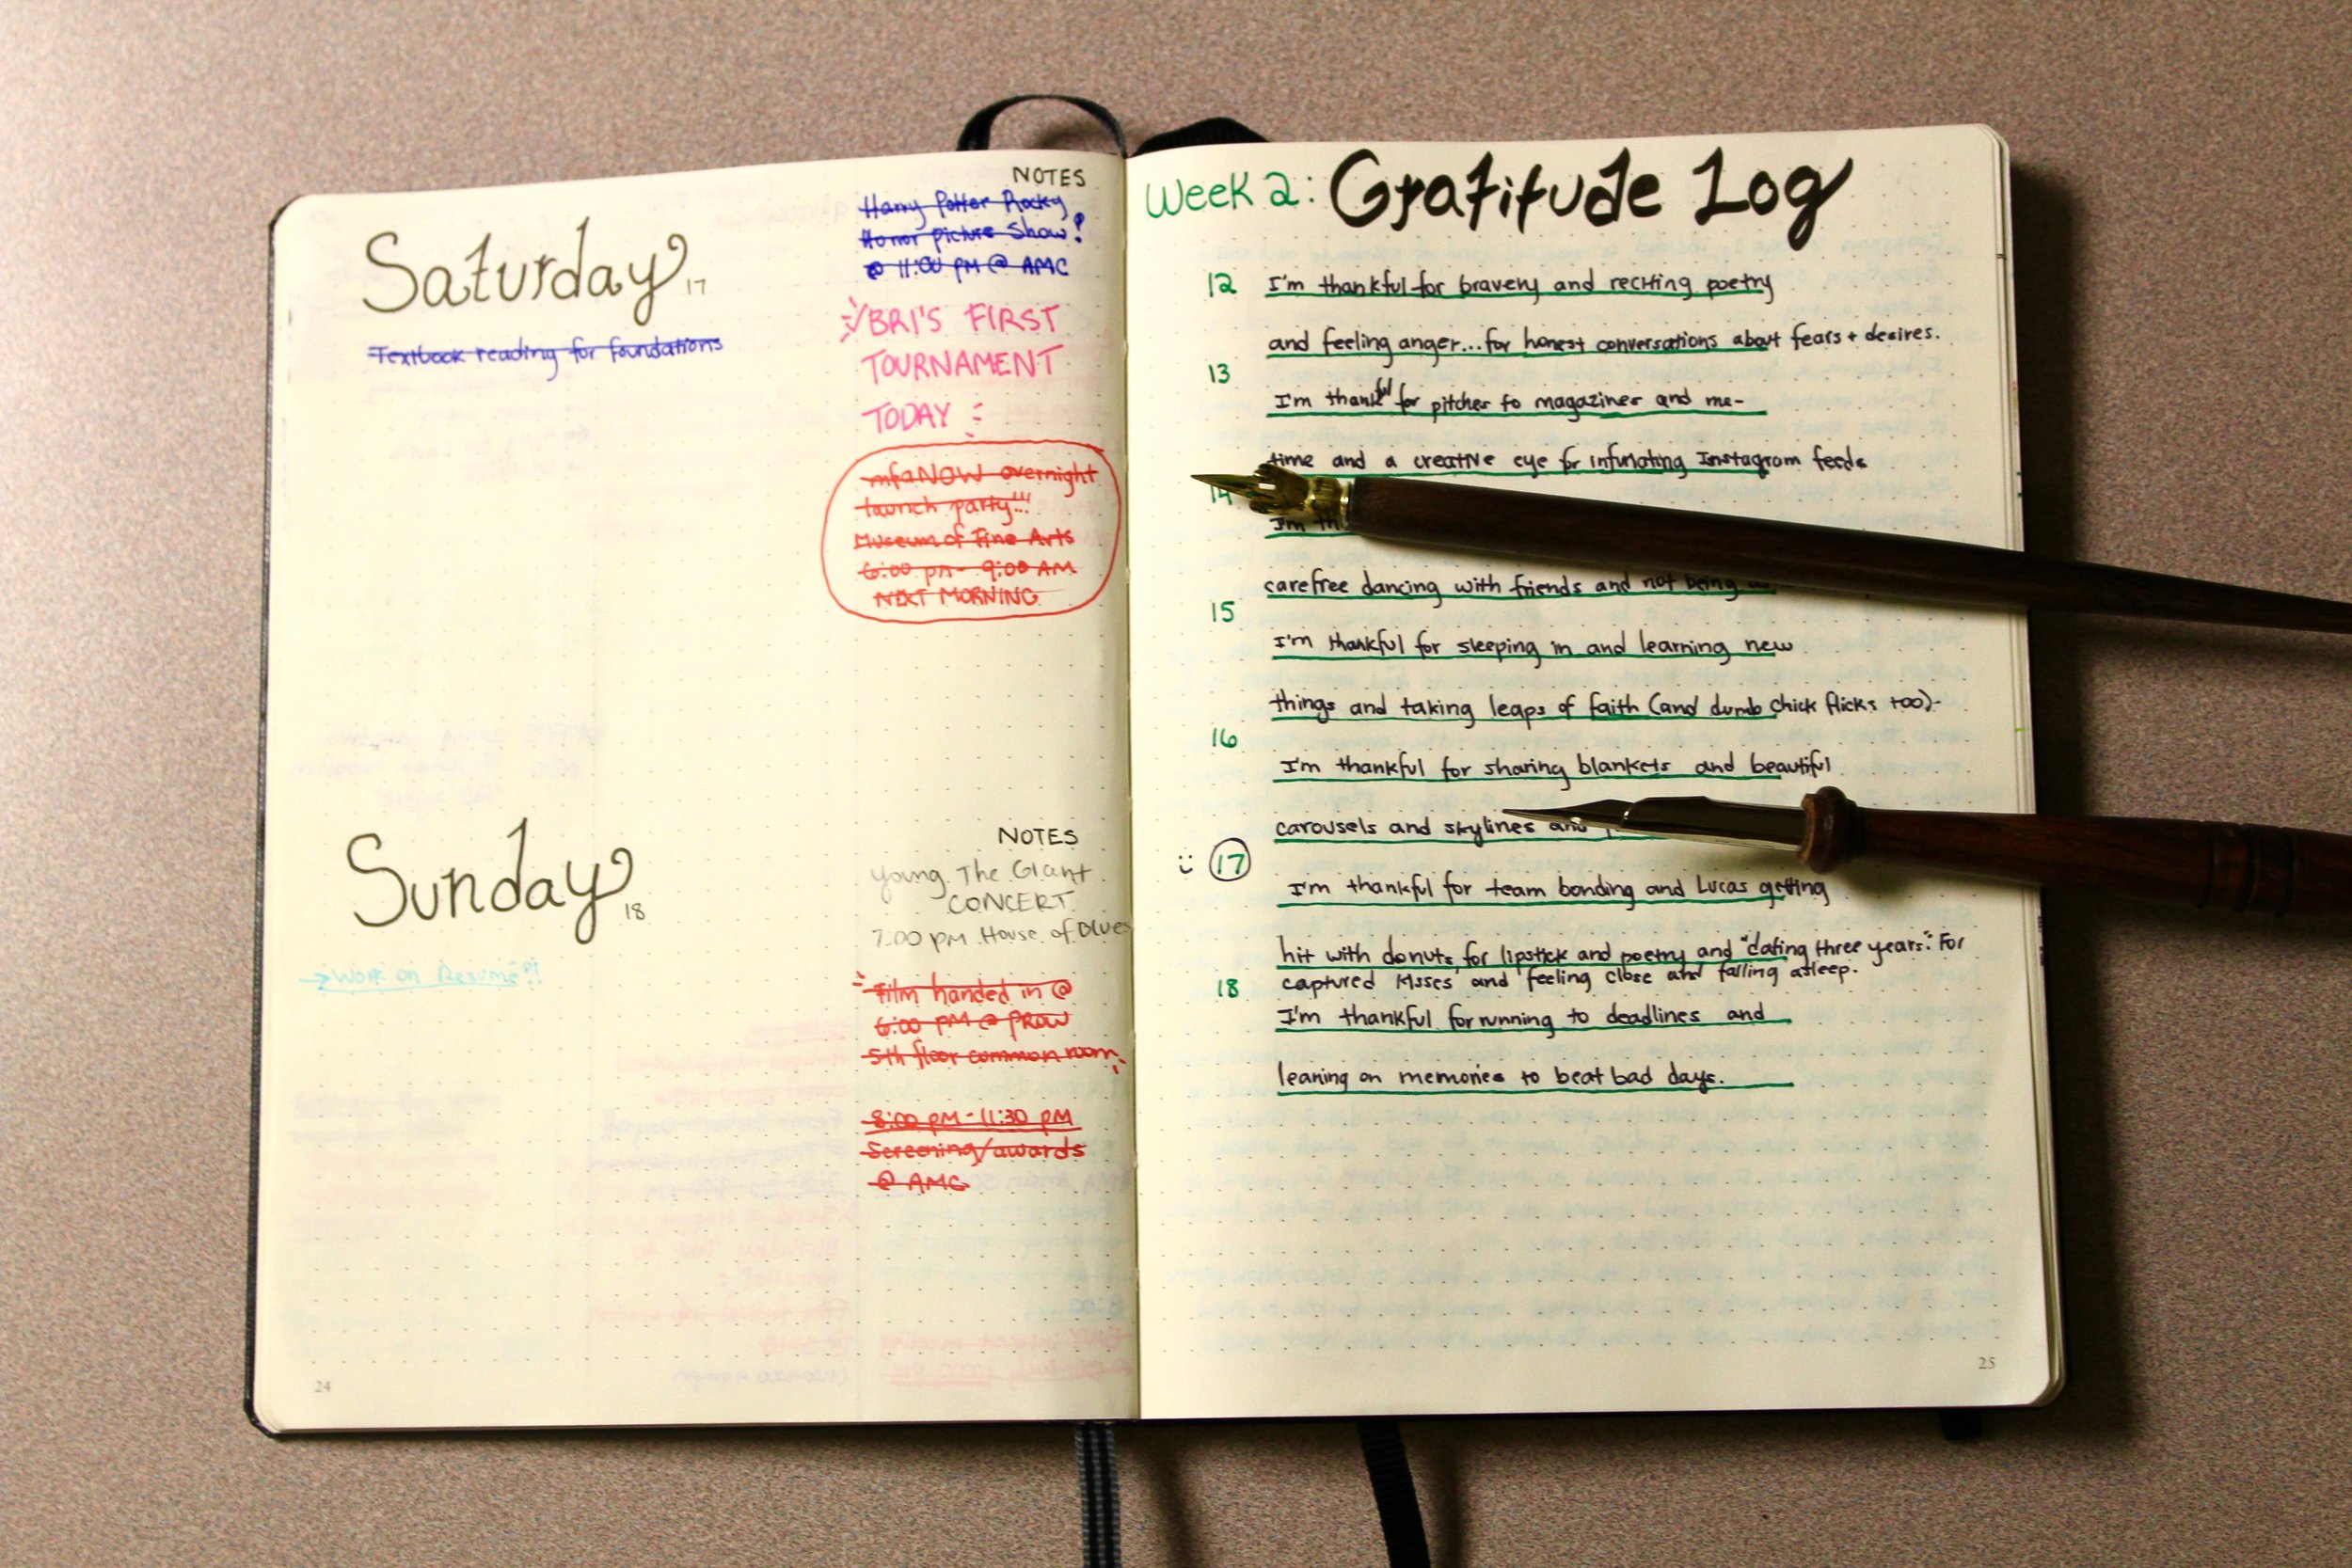 Saturday 17
Textbook reading for foundations
NOTES
Harry Potter Rocky
Horror picture Show!
@ 11:00 PM @ AMC
BRI'S FIRST
TOURNAMENT
TODAY
mfaNOW overnight
launch party!!!
Museum of Fine Arts
6:00 pm - 9:00 AM
NEXT MORNING
Sunday 18
→Work on Resume?!
NOTES
Young The Giant
CONCERT
7:00 PM House of Blues
Film handed in @
6:00 PM @ PROW
5th floor common room
8:00 PM - 11:30 PM
Screening/awards
@ AMC
24
Week 2: Gratitude Log
12 I'm thankful for bravery and reciting poetry
and feeling anger...for honest conversations about fears + desires.
13
I'm thankful for pitches to magazines and me-
time and a creative eye for infuriating Instagram feeds
14
I'm th
carefree dancing with friends and not being
15
I'm thankful for sleeping in and learning new
things and taking leaps of faith (and dumb chick flicks too).
16
I'm thankful for sharing blankets and beautiful
carousels and skylines and
:) 17
I'm thankful for team bonding and Lucas getting
hit with donuts, for lipstick and poetry and "dating three years". For
captured kisses and feeling close and falling asleep.
18
I'm thankful for running to deadlines and
leaning on memories to beat bad days.
25